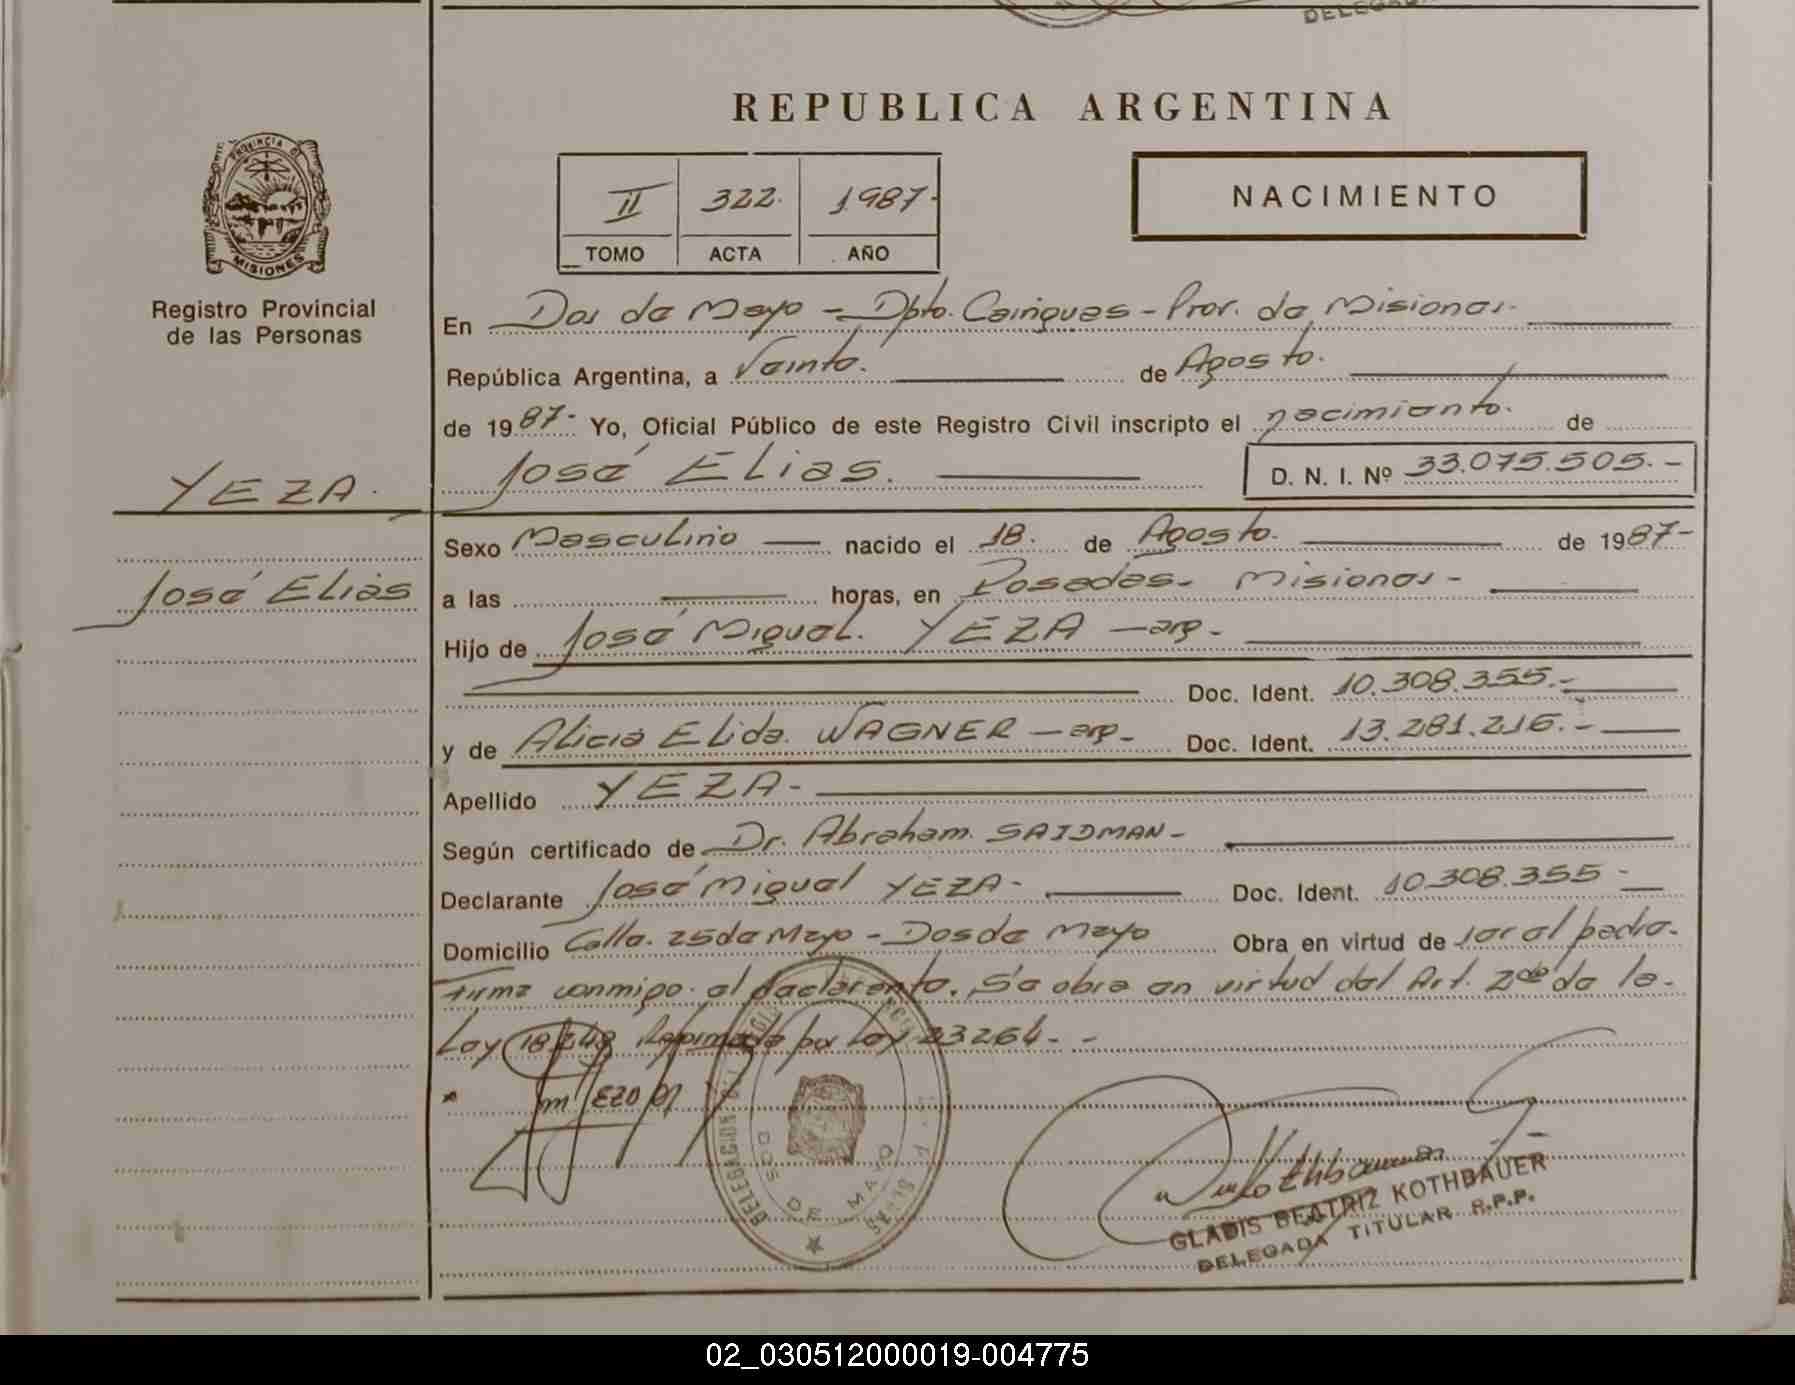 DELEGADA
REPUBLICA ARGENTINA
II 322. 1987.
TOMO ACTA AÑO
NACIMIENTO
PROVINCIA DE
MISIONES
Registro Provincial
de las Personas
En Dos de Mayo - Dpto. Cainguas - Prov. de Misiones.
República Argentina, a Veinte. de Agosto.
de 1987.- Yo, Oficial Público de este Registro Civil inscripto el nacimiento. de
YEZA. José Elias. D. N. I. Nº 33.075.505.-
Sexo Masculino nacido el 18. de Agosto. de 1987-
José Elias a las horas, en Posadas - Misiones -
Hijo de José Miguel. YEZA - arg -
Doc. Ident. 10.308.355.-
y de Alicia Elida. WAGNER - arg - Doc. Ident. 13.281.216.-
Apellido YEZA -
Según certificado de Dr. Abraham. SAIDMAN -
Declarante José Miguel YEZA - Doc. Ident. 10.308.355 -
Domicilio Calle. 25 de Mayo - Dos de Mayo Obra en virtud de ser el padre.
Firma conmigo. el declarante. Se obra en virtud del Art. 2do de la
Ley 18248 Reformada por Ley 23264. -
DELEGACION
DOS DE MAYO
GLADIS BEATRIZ KOTHBAUER
DELEGADA TITULAR R.P.P.
02_030512000019-004775